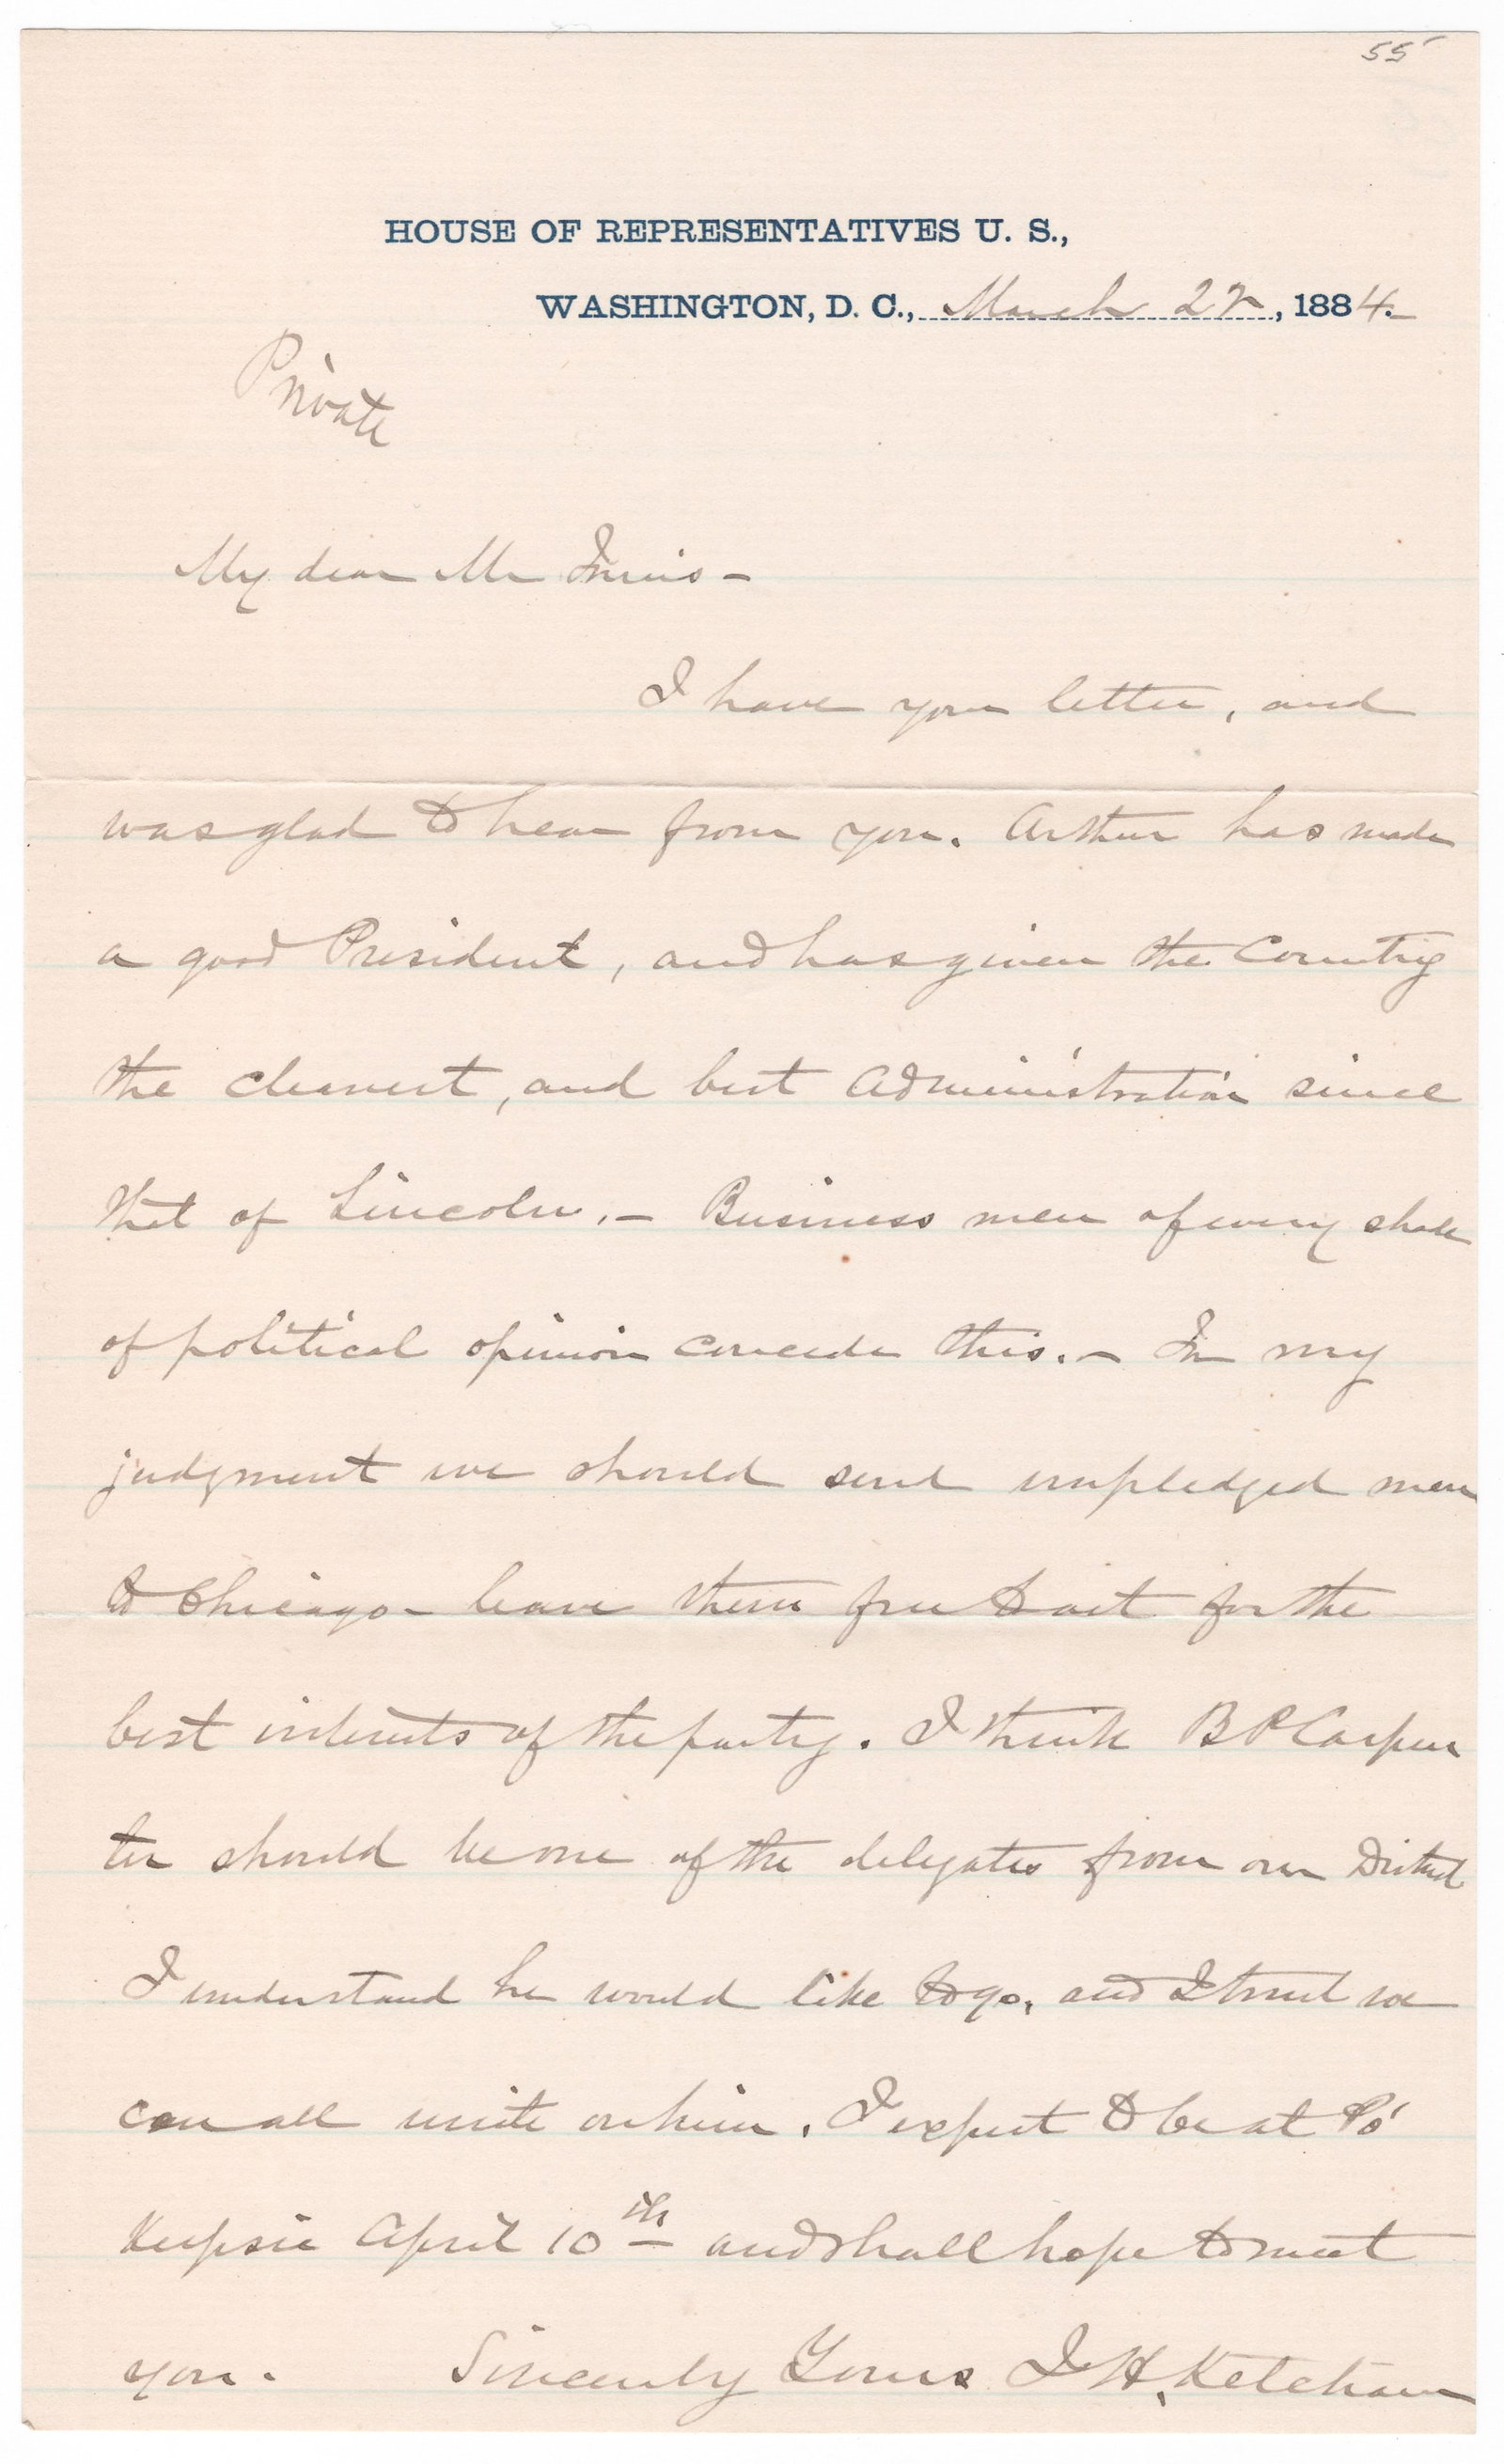 55
HOUSE OF REPRESENTATIVES U. S.,
WASHINGTON, D. C., March 22, 1884.
Private
My dear Mr Innis -
I have your letter, and
was glad to hear from you. Arthur has made
a good President, and has given the Country
the cleanest, and best Administration since
that of Lincoln. - Business men of every shade
of political opinion concede this. - In my
judgment we should send unpledged men
to Chicago - leave them free to act for the
best interests of the party. I think B P Carpen
ter should be one of the delegates from our District
I understand he would like to go, and I trust we
can all unite on him. I expect to be at Po'
Keepsie April 10th and shall hope to meet
you. Sincerely Yours J H. Ketcham